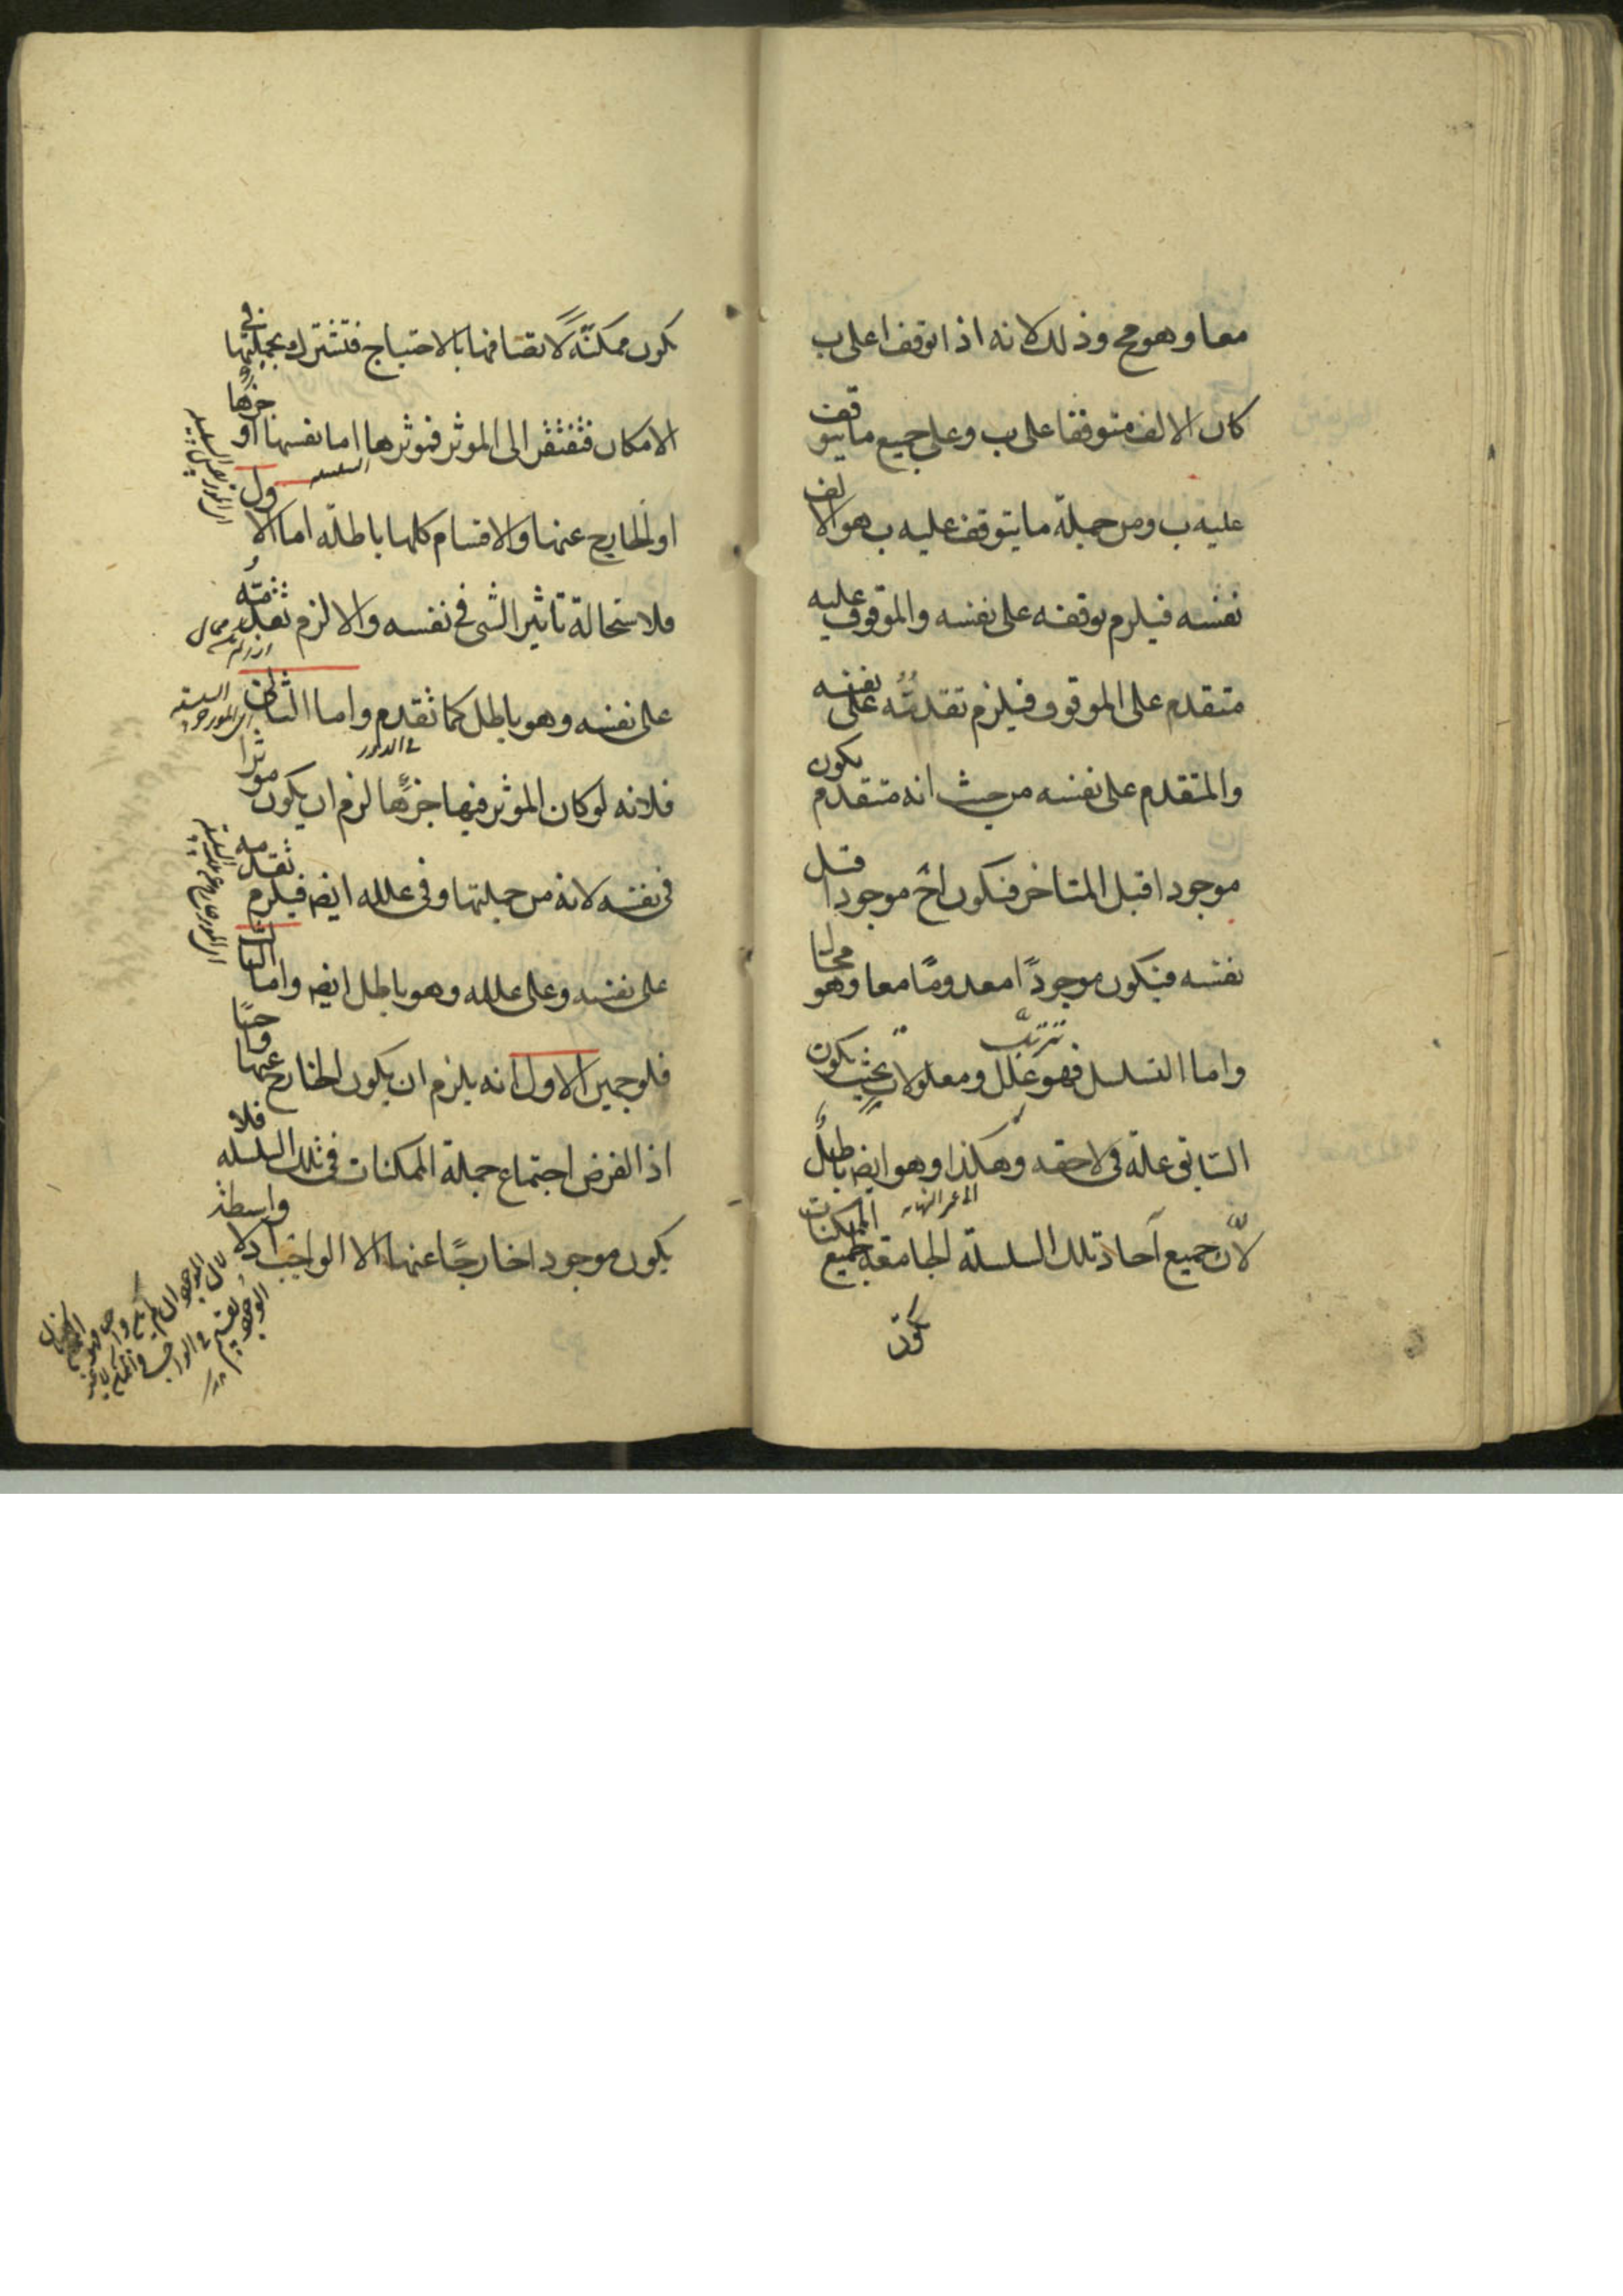 معا وهو مح وذلك لانه اذا توقف ا على ب
كان الالف متوقفا على ب وعلى جميع ما يتوقف
عليه ب ومن جملة ما يتوقف عليه ب هو الالف
نفسه فيلزم توقفه على نفسه والموقوف عليه
متقدم على الموقوف فيلزم تقدمه على نفسه
والمتقدم على نفسه من حيث انه متقدم يكون
موجودا قبل المتاخر فيكون اح موجودا قبل
نفسه فيكون موجودًا معدومًا معا وهو محال
واما التسلسل فهو ترتب علل ومعلولات بحيث يكون
السابق علة فى لاحقه وهكذا وهو ايضه باطل
الى غير النهايه
لانّ جميع آحاد تلك السلسلة الجامعة لجميع الممكنات
تكون
يكون ممكنة لاتصافها بالاحتياج فتشترك بجملتها فى
الامكان فتفتقر الى الموثر فموثرها اما نفسها او جزءها
السلسله
او الخارج عنها والاقسام كلها باطلة اما الاول
فلاستحالة تاثير الشى فى نفسه والا لزم تقدمه
على نفسه وهو باطل كما تقدم واما الثانى
فى الدور
فلانه لو كان الموثر فيها جزءها لزم ان يكون موثرا
فى نفسه لانه من جملتها وفى علله ايضه فيلزم تقدمه
على نفسه وعلى علله وهو باطل ايضه واما الثالث
فلوجهين الاول انه يلزم ان يكون الخارج عنها واجبًا
اذ الفرض اجتماع جملة الممكنات فى تلك السلسله فلا
يكون موجودا خارجًا عنها الا الواجب اذ لا واسطة